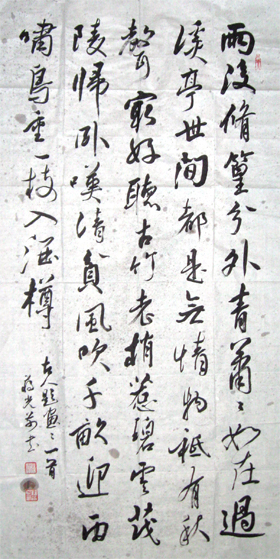 雨後脩篁分外青蕭〻如在過
溪亭世間都是無情物祗有秋
聲最好聽古竹老梢惹碧雲茂
陵歸臥嘆清貧風吹千畝迎雨
嘯鳥重一枝入酒樽
古人題畫之一首